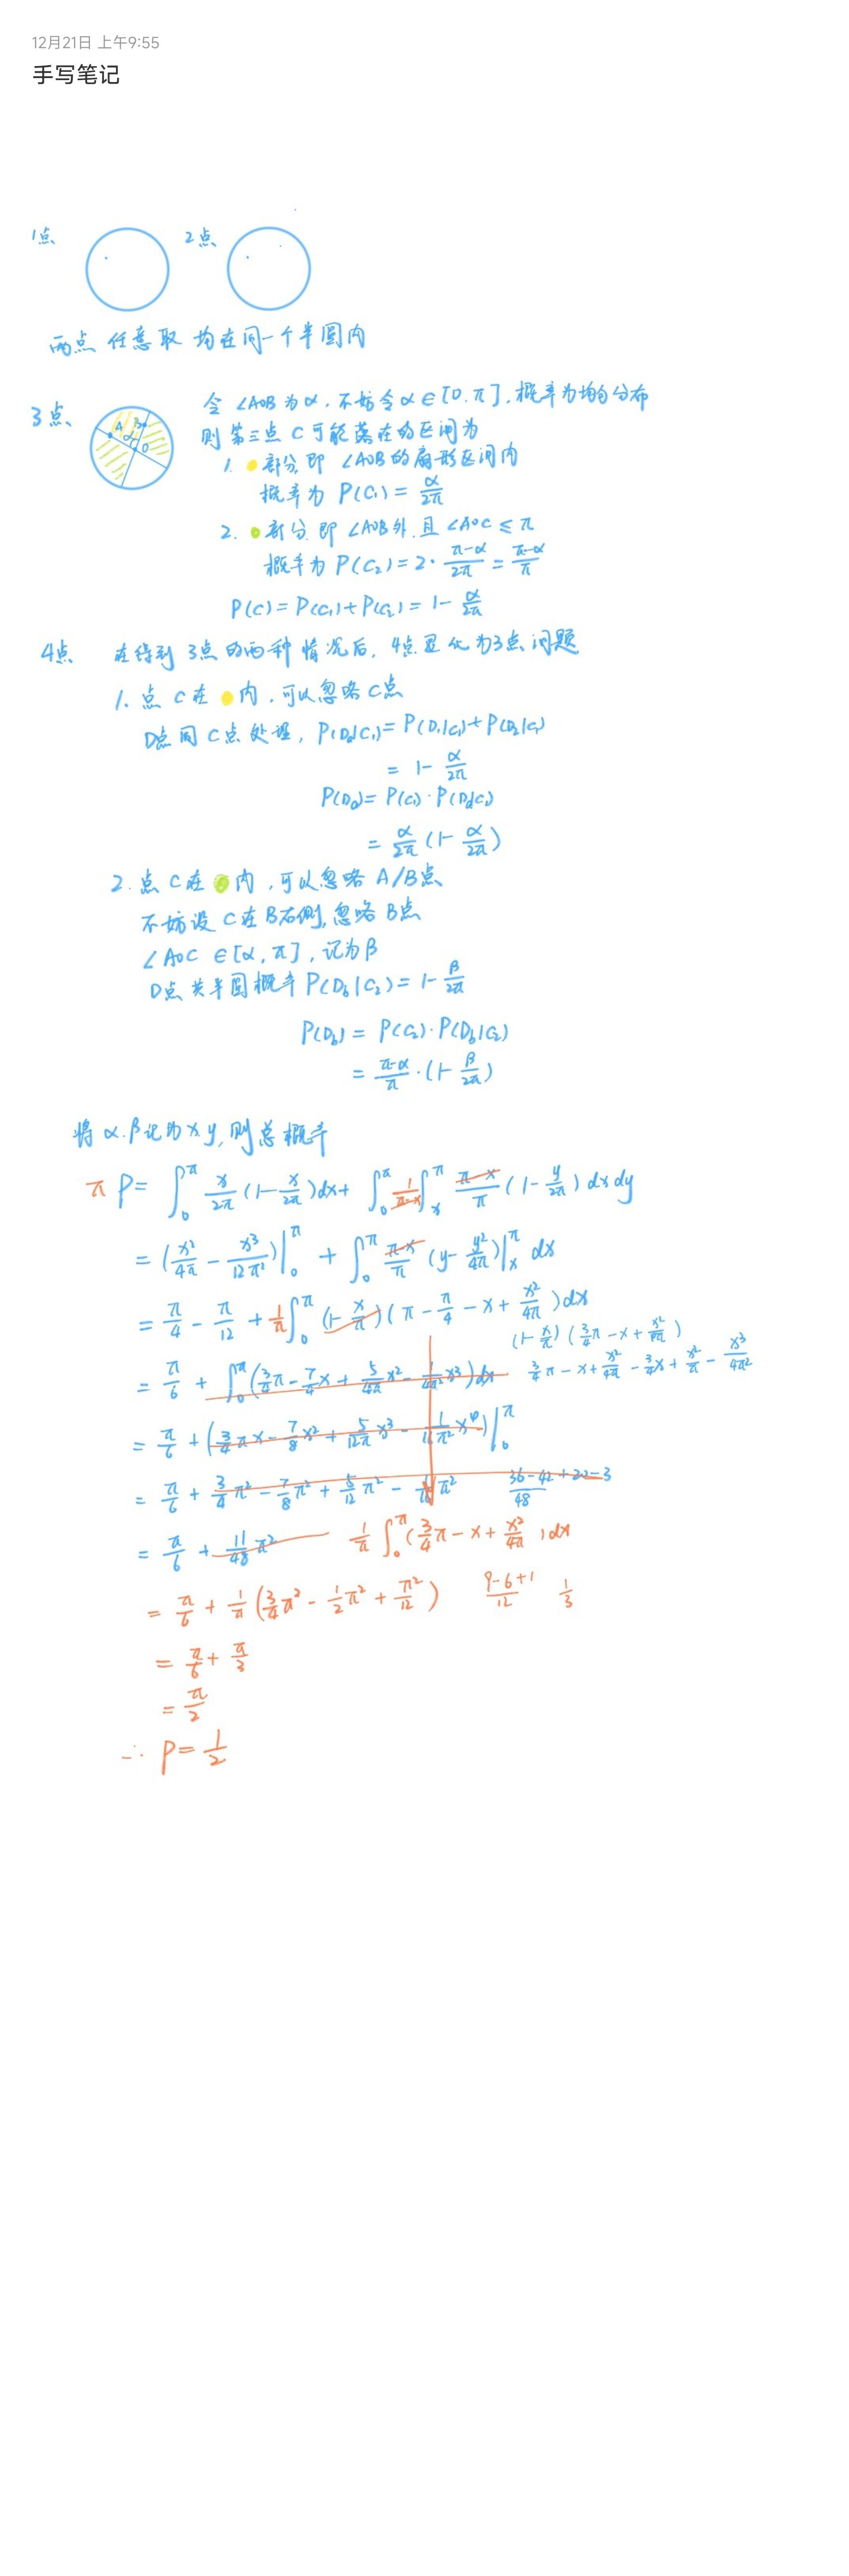 12月21日 上午9:55
手写笔记
1点 2点
两点 任意取 均在同一个半圆内
3点
A B
α O
令 ∠AOB 为 α, 不妨令 α∈[0,π], 概率为均匀分布
则 第三点 C 可能落在的区间为
1. 部分, 即 ∠AOB 的扇形区间内
概率为 P(C₁) = α/2π
2. 部分 即 ∠AOB 外 且 ∠AOC ≤ π
概率为 P(C₂) = 2·(π-α)/2π = (π-α)/π
P(C) = P(C₁)+P(C₂) = 1 - α/2π
4点 在得到 3点的两种情况后, 4点退化为3点问题
1. 点 C 在 内, 可以忽略 C点
D点同 C点处理, P(Da|C₁) = P(D₁|C₁)+P(D₂|C₁)
= 1 - α/2π
P(Da) = P(C₁)·P(Da|C₁)
= α/2π (1 - α/2π)
2. 点 C 在 内, 可以忽略 A/B点
不妨设 C在 B右侧, 忽略 B点
∠AOC ∈ [α, π], 记为 β
D点 共半圆概率 P(Db|C₂) = 1 - β/2π
P(Db) = P(C₂)·P(Db|C₂)
= (π-α)/π ·(1 - β/2π)
将 α.β记为 x y, 则总概率
π P = ∫₀^π x/2π (1 - x/2π)dx + ∫₀^π 1/(π-x) ∫ₓ^π (π-x)/π (1 - y/2π) dx dy
= (x²/4π - x³/12π²)|₀^π + ∫₀^π (π-x)/π (y - y²/4π)|ₓ^π dx
= π/4 - π/12 + 1/π ∫₀^π (1 - x/π)(π - π/4 - x + x²/4π)dx
(1 - x/π)(3/4 π - x + x²/4π)
= π/6 + ∫₀^π (3/4 π - 7/4 x + 5/4π x² - 1/4π² x³)dx
3/4 π - x + x²/4π - 3/4 x + x²/π - x³/4π²
= π/6 + (3/4 πx - 7/8 x² + 5/12π x³ - 1/16π² x⁴)|₀^π
= π/6 + 3/4 π² - 7/8 π² + 5/12 π² - 1/16 π² (36-42+20-3)/48
= π/6 + 11/48 π² 1/π ∫₀^π (3/4 π - x + x²/4π)dx
= π/6 + 1/π (3/4 π² - 1/2 π² + π²/12) (9-6+1)/12 1/3
= π/6 + π/3
= π/2
∴ P = 1/2